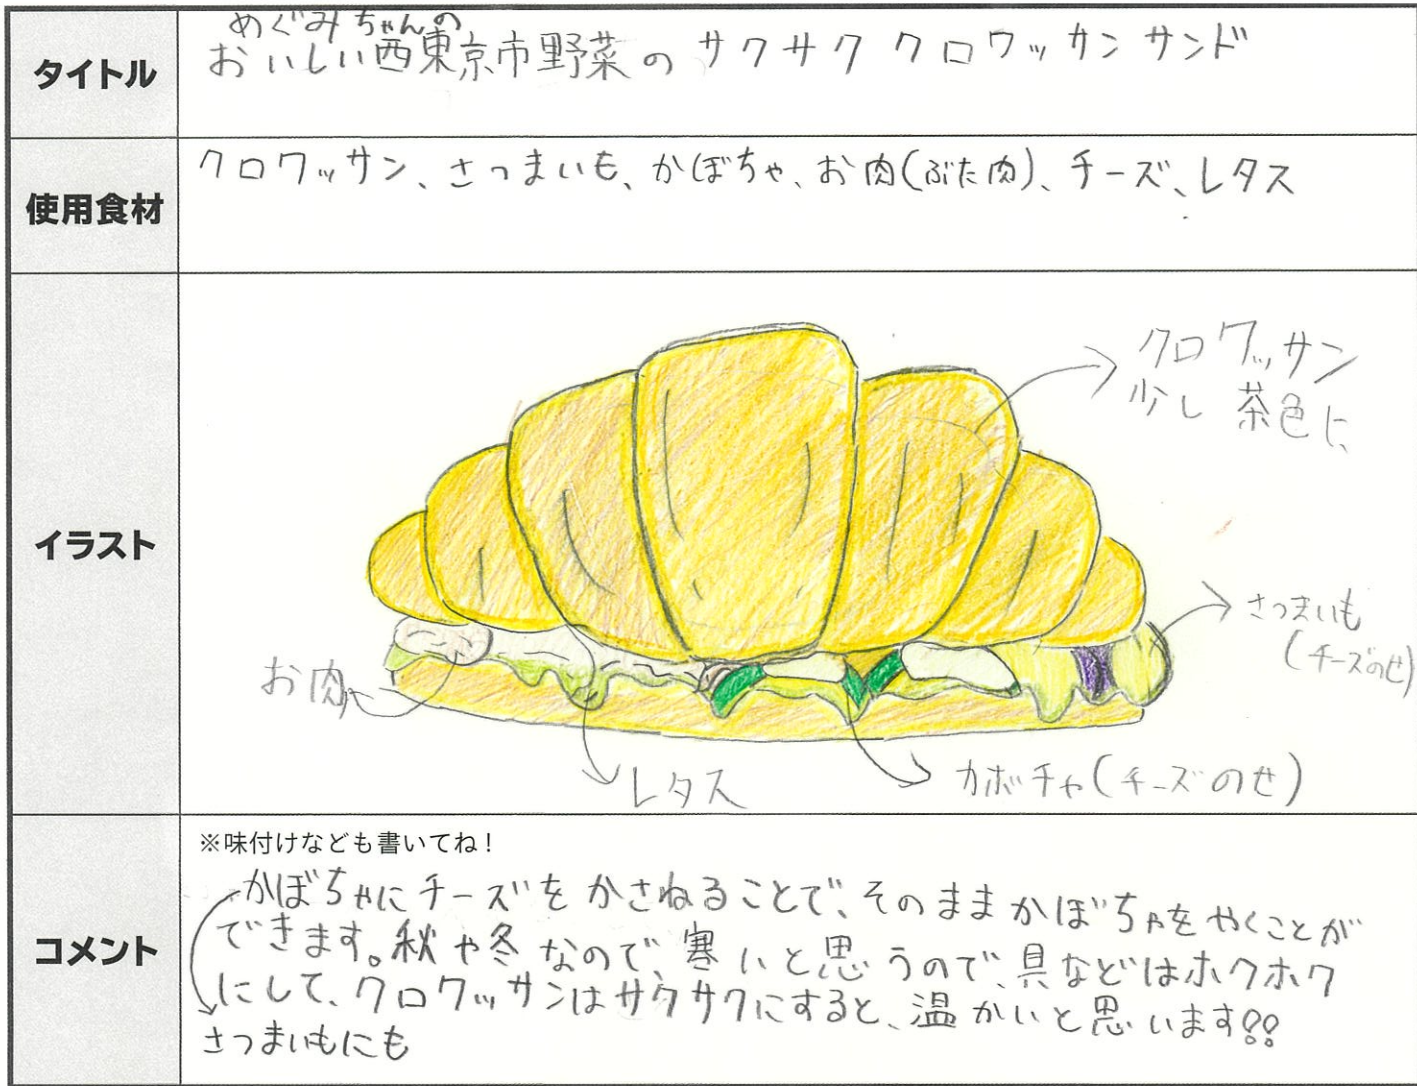 タイトル
めぐみちゃんの
おいしい西東京市野菜のサクサククロワッカンサンド
使用食材
クロワッサン、さつまいも、かぼちゃ、お肉(ぶた肉)、チーズ、レタス
イラスト
クロワッサン
少し茶色に
さつまいも
(チーズのせ)
お肉
レタス
カボチャ(チーズのせ)
コメント
※味付けなども書いてね!
かぼちゃにチーズをかさねることで、そのままかぼちゃをやくことが
できます。秋や冬なので、寒いと思うので、具などはホクホク
にして、クロワッサンはサクサクにすると、温かいと思います!!
さつまいもにも